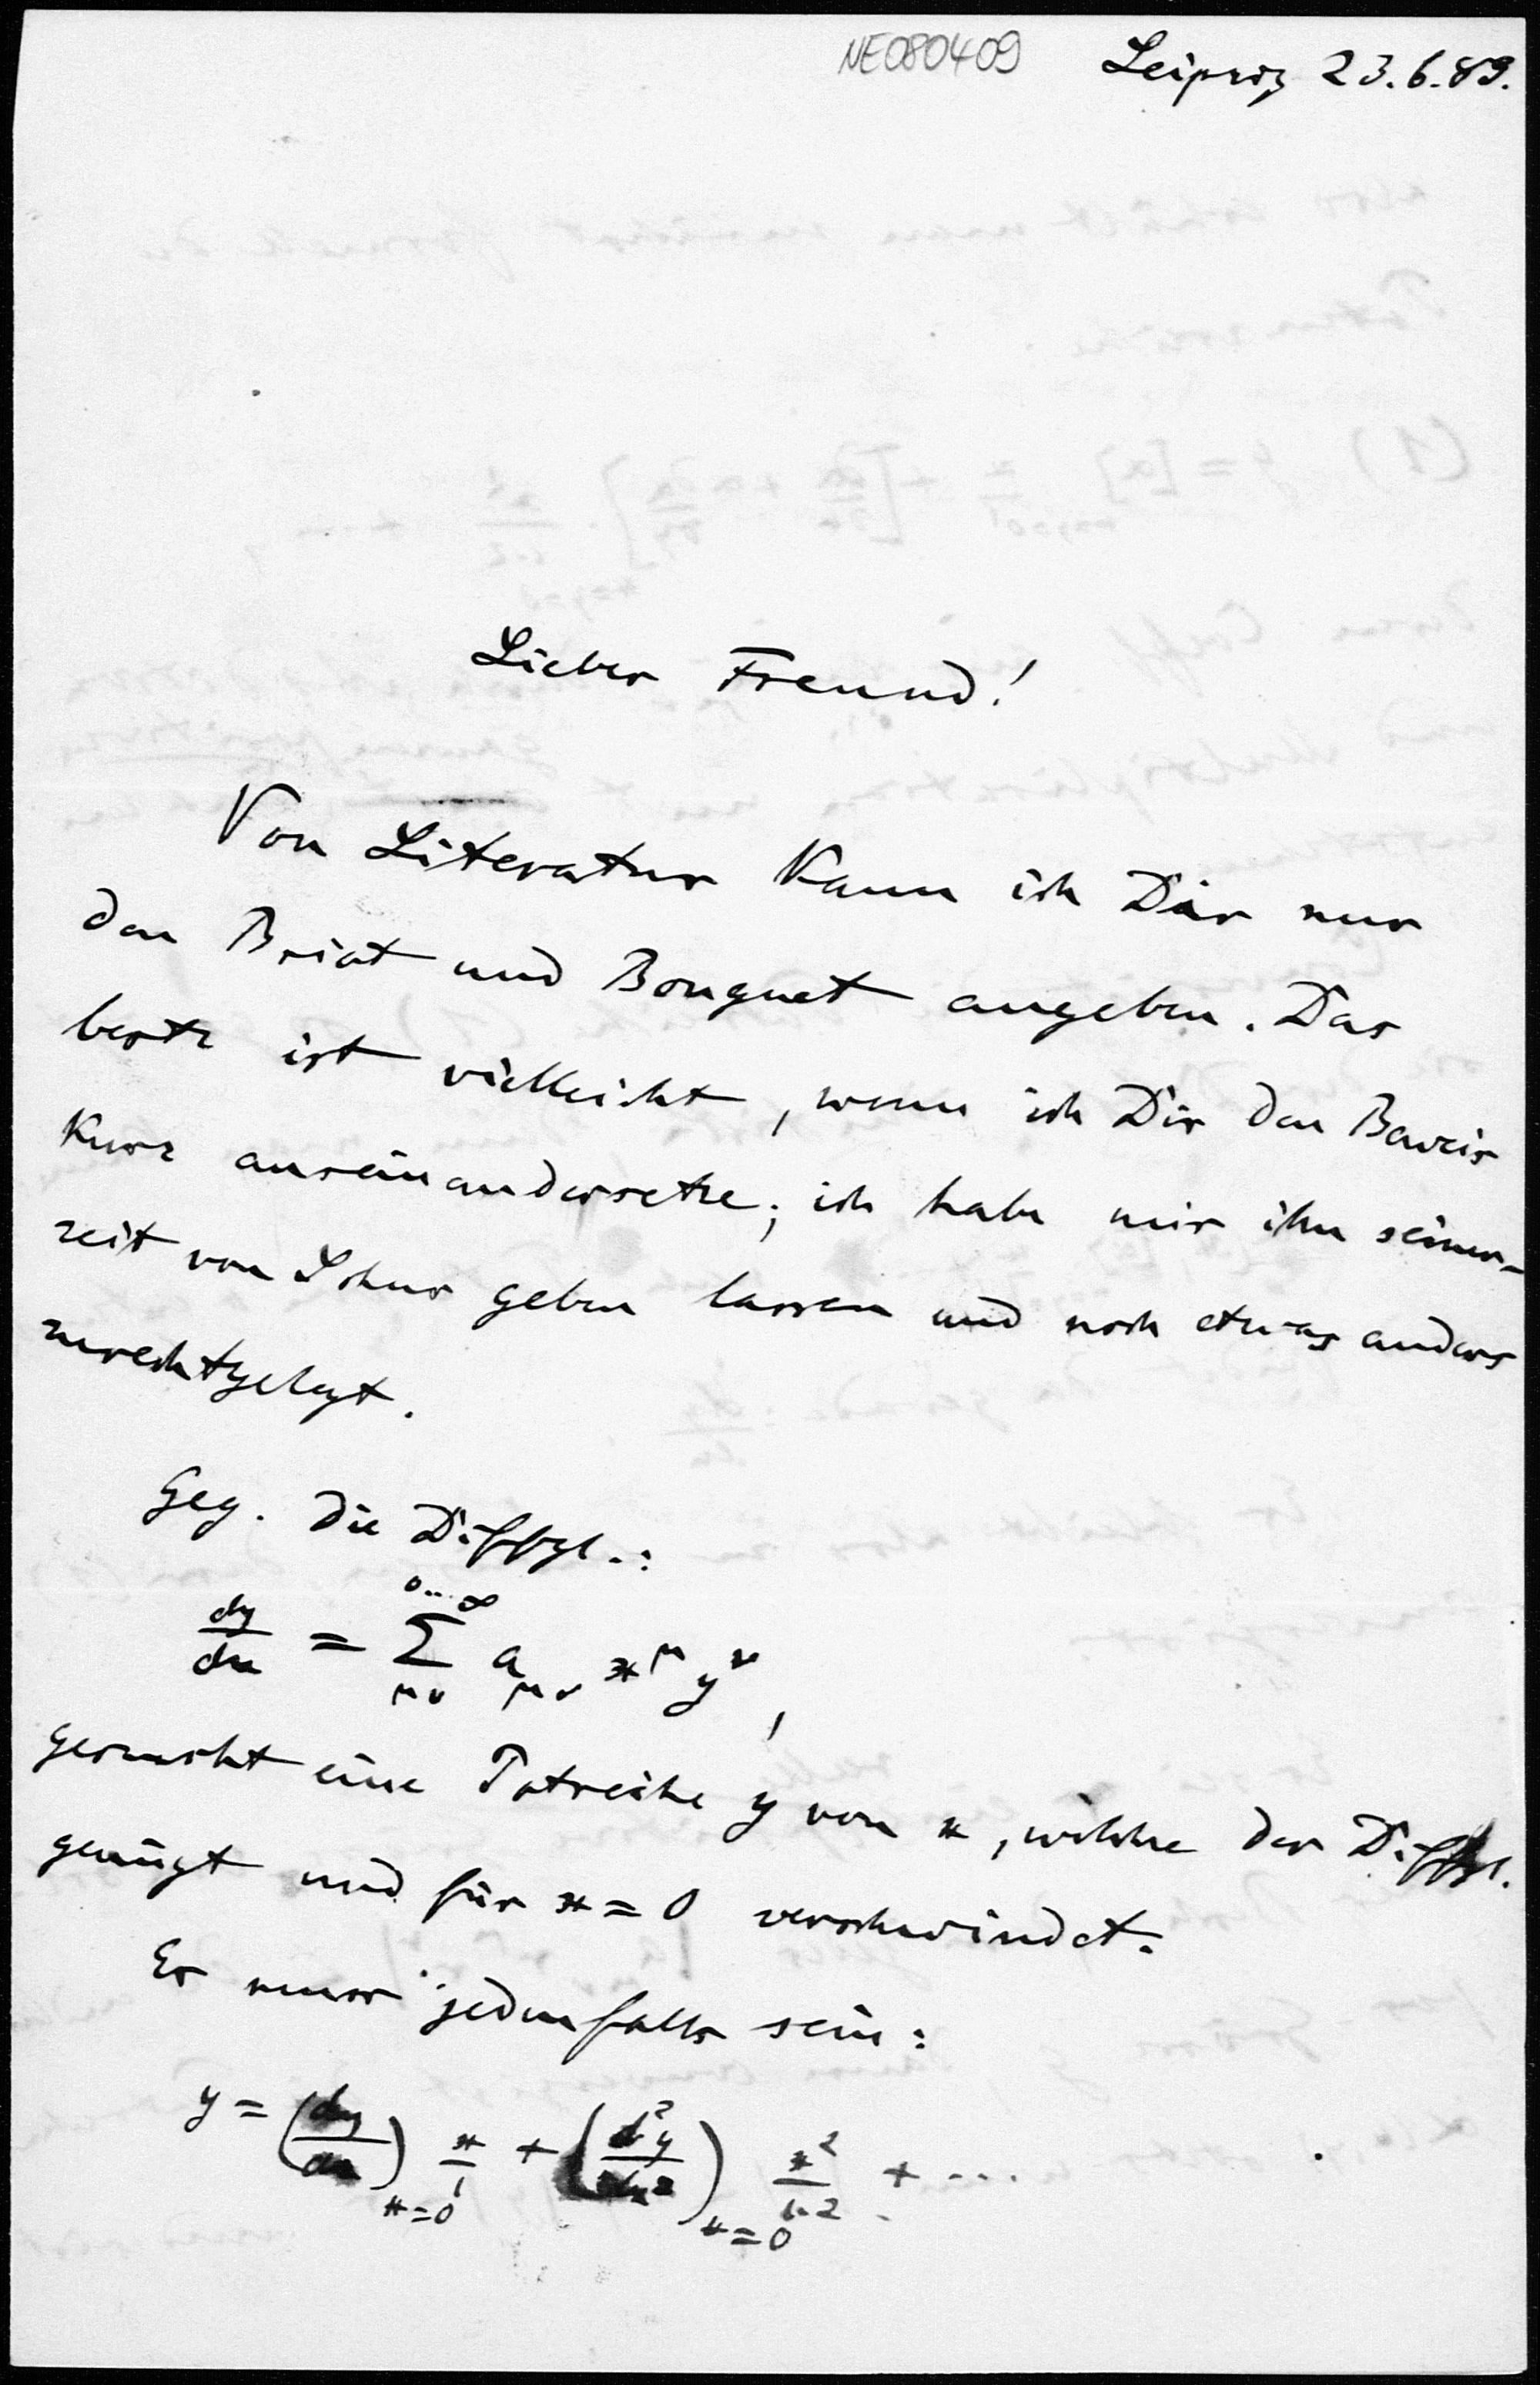 NE080409 Leipzig 23.6.89.
Lieber Freund!
Von Literatur kann ich Dir nur
den Briot und Bouquet angeben. Das
beste ist vielleicht, wenn ich Dir den Beweis
kurz auseinandersetze; ich habe mir ihn seiner-
zeit von geben lassen und noch etwas anders
zurechtgelegt.
Geg. die Diffgl.:
dy/dx = Σ_{μν}^{0...∞} a_{μν} x^μ y^ν,
gesucht eine Potreihe y von x, welche der Diffgl.
genügt und für x=0 verschwindet.
Es muss jedenfalls sein:
y = (dy/dx)_{x=0} x/1 + (d²y/dx²)_{x=0} x²/1.2 + ...